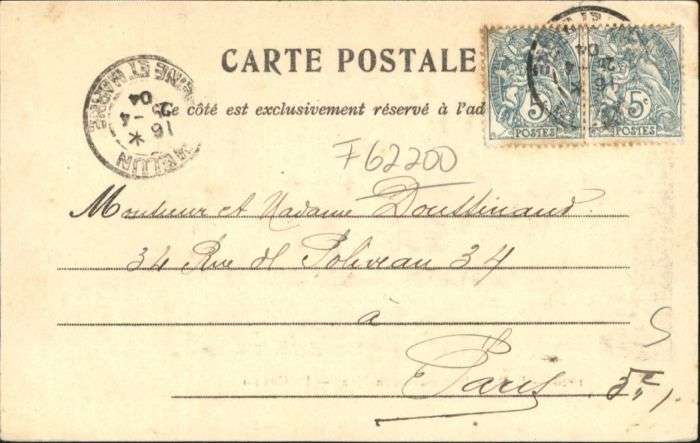 CARTE POSTALE
Ce côté est exclusivement réservé à l'ad
5c POSTES
5c POSTES
MELUN
SEINE ET MARNE
16 -4
04
F62200
Monsieur et Madame
34 Rue de Poliveau 34
à
Paris 5e